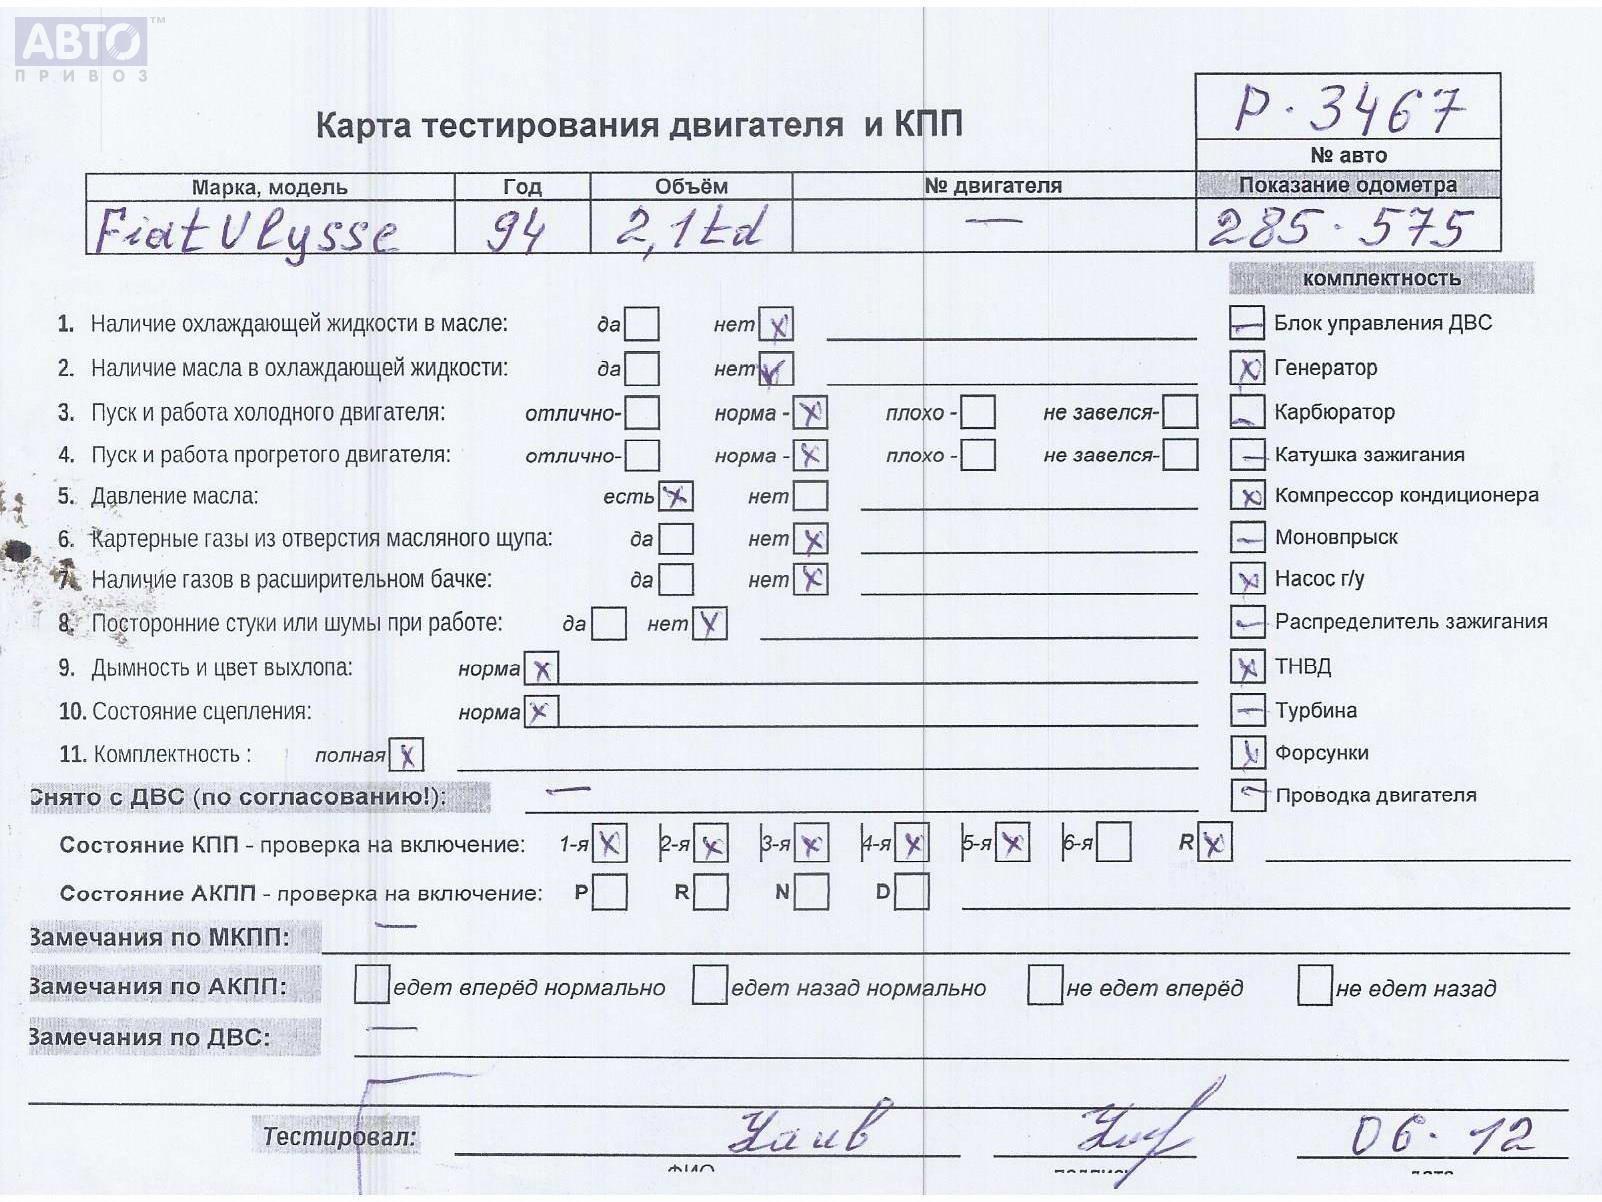 АВТО™
ПРИВОЗ
Р·3467
Карта тестирования двигателя и КПП
№ авто
Марка, модель Год Объём № двигателя Показание одометра
Fiat Ulysse 94 2,1td — 285·575
комплектность
1. Наличие охлаждающей жидкости в масле: да нет x
— Блок управления ДВС
2. Наличие масла в охлаждающей жидкости: да нет v
x Генератор
3. Пуск и работа холодного двигателя: отлично- норма - x плохо - не завелся-
— Карбюратор
4. Пуск и работа прогретого двигателя: отлично- норма - x плохо - не завелся-
— Катушка зажигания
5. Давление масла: есть x нет
x Компрессор кондиционера
6. Картерные газы из отверстия масляного щупа: да нет x
— Моновпрыск
7. Наличие газов в расширительном бачке: да нет x
x Насос г/у
8. Посторонние стуки или шумы при работе: да нет x
— Распределитель зажигания
9. Дымность и цвет выхлопа: норма x
x ТНВД
10. Состояние сцепления: норма x
— Турбина
11. Комплектность : полная x
x Форсунки
Снято с ДВС (по согласованию!): —
— Проводка двигателя
Состояние КПП - проверка на включение: 1-я x 2-я x 3-я x 4-я x 5-я x 6-я R x
Состояние АКПП - проверка на включение: P R N D
Замечания по МКПП: —
Замечания по АКПП: едет вперёд нормально едет назад нормально не едет вперёд не едет назад
Замечания по ДВС: —
Тестировал: 06·12
ФИО подпись дата